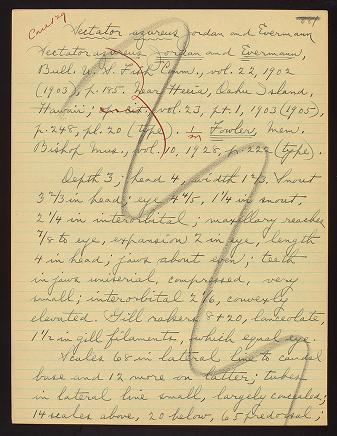 Sectator azureus Jordan and Evermann
Sectator azureus Jordan and Evermann,
Bull. U. S. Fish Comm., vol. 22, 1902
(1903), p. 185. Near Heeia, Oahu Island,
Hawaii; vol. 23, pt. 1, 1903 (1905),
p. 248, pl. 20 (type). Fowler, Mem.
Bishop Mus., vol. 10, 1928, p. 222 (type).
Depth 3; head 4, width 1 2/3. Snout
3 2/3 in head; eye 4 4/5, 1 1/4 in snout,
2 1/4 in interorbital; maxillary reaches
7/8 to eye, expansion 2 in eye, length
4 in head; jaws about even; teeth
in jaws uniserial, compressed, very
small; interorbital 2 1/6, convexly
elevated. Gill rakers 8 + 20, lanceolate,
1 1/2 in gill filaments, which equal eye.
Scales 68 in lateral line to caudal
base and 12 more on latter; tubes
in lateral line small, largely concealed;
14 scales above, 20 below, 65 predorsal;